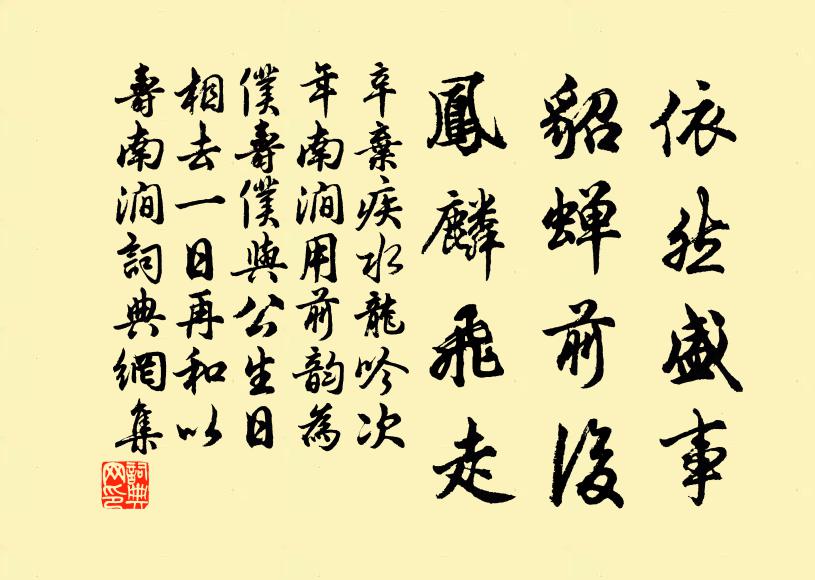 依然盛事
貂蟬前後
鳳麟飛走
辛棄疾水龍吟次
年南澗用前韵為
僕壽僕與公生日
相去一日再和以
壽南澗詞典網集
詞典
网印